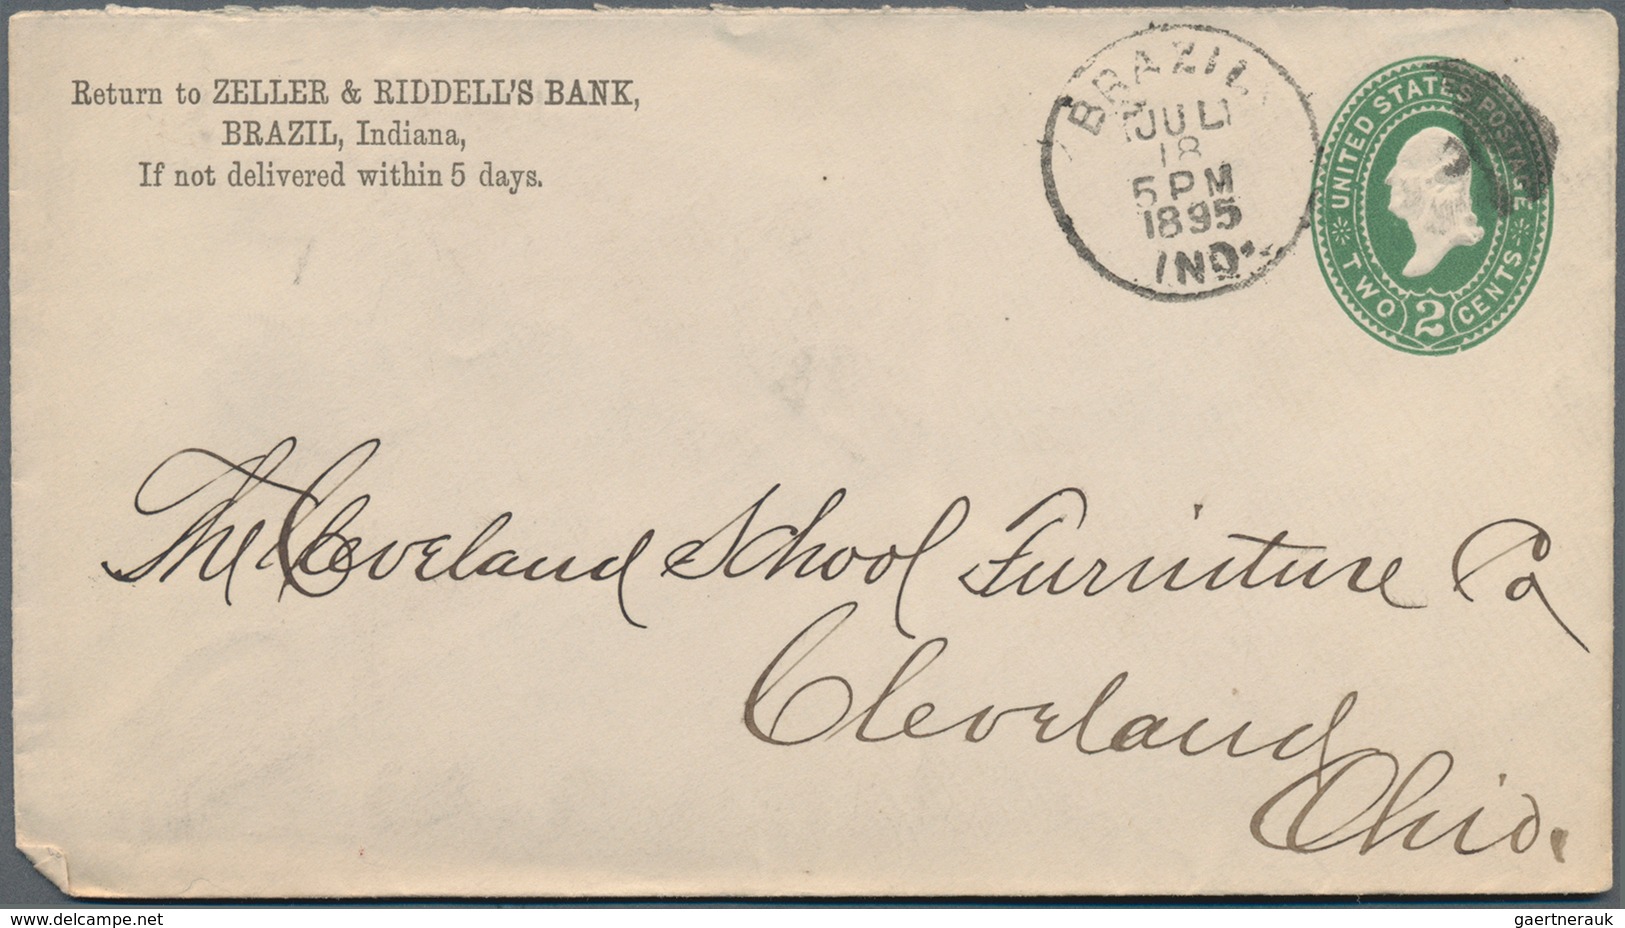 Return to ZELLER & RIDDELL'S BANK,
BRAZIL, Indiana,
If not delivered within 5 days.
BRAZIL
JUL
18
5 PM
1895
IND.
UNITED STATES POSTAGE
TWO 2 CENTS
The Cleveland School Furniture Co
Cleveland
Ohio.
www.delcampe.net
gaertnerauk